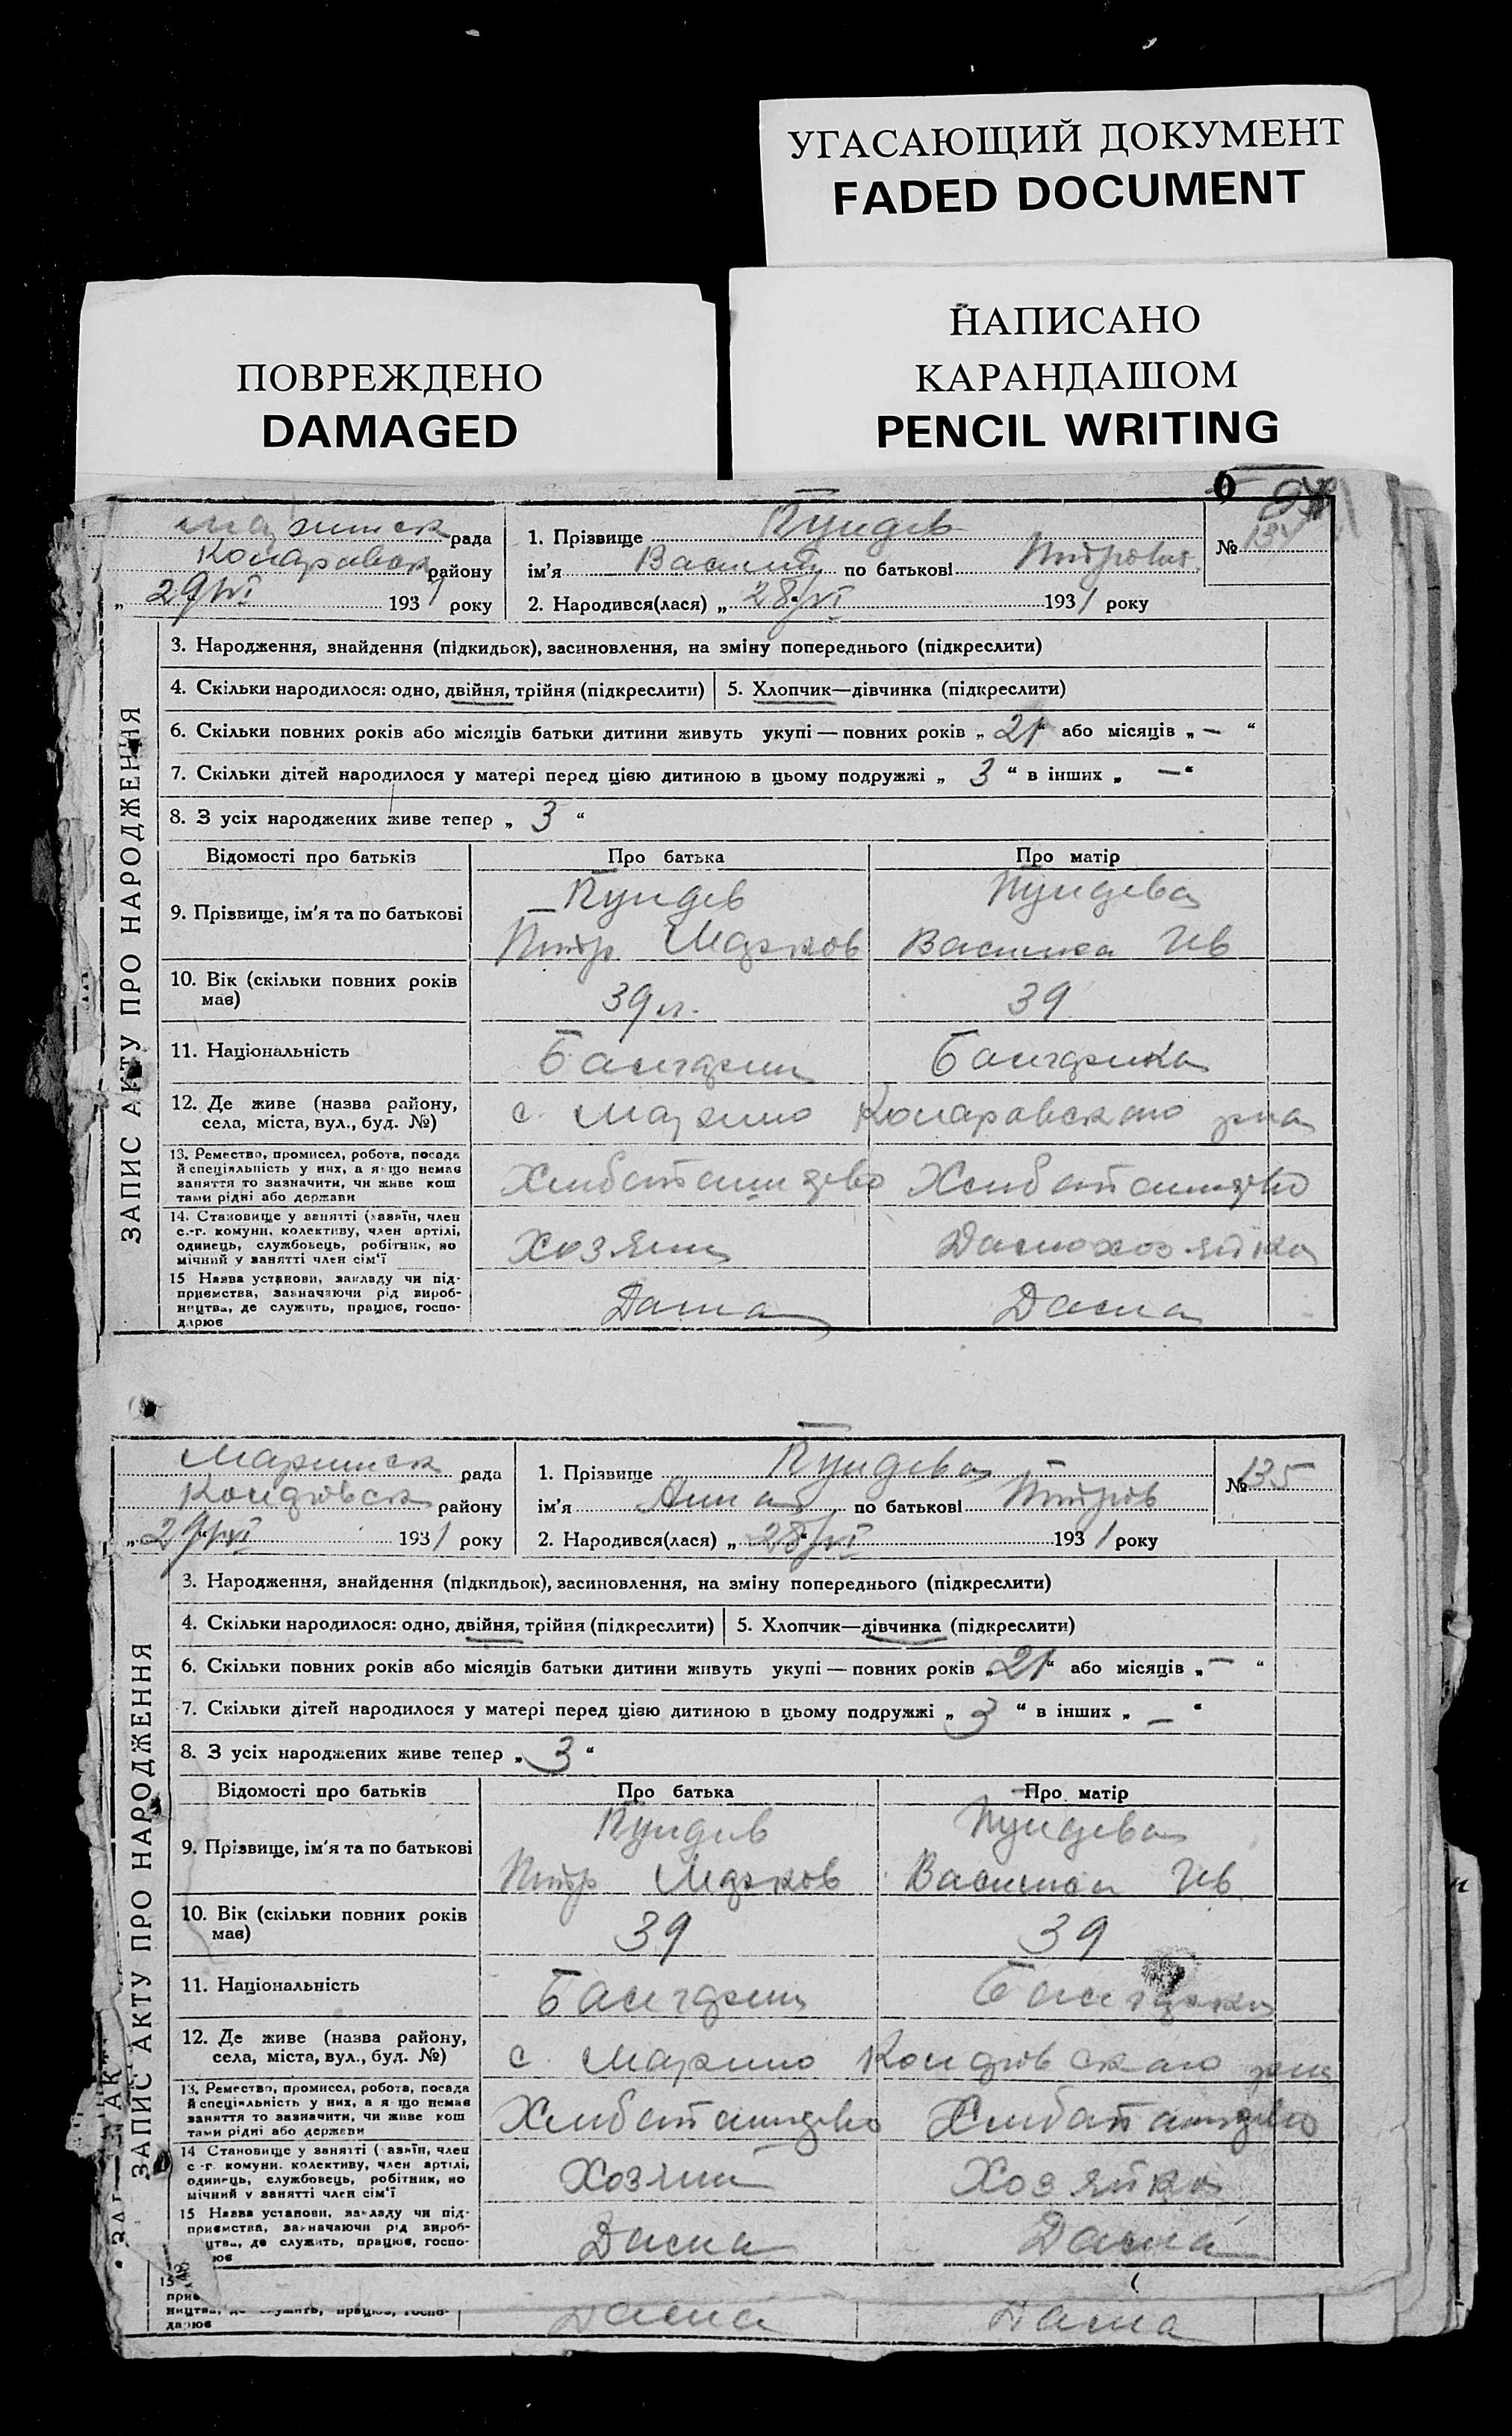 УГАСАЮЩИЙ ДОКУМЕНТ
FADED DOCUMENT
НАПИСАНО
КАРАНДАШОМ
PENCIL WRITING
ПОВРЕЖДЕНО
DAMAGED
рада
району
„ 29/VI 1931 року
1. Прізвище Пундев
ім'я Василий по батькові Петрович
2. Народився(лася) „ 28/VI 1931 року
№ 134
ЗАПИС АКТУ ПРО НАРОДЖЕННЯ
3. Народження, знайдення (підкидьок), засиновлення, на зміну попереднього (підкреслити)
4. Скільки народилося: одно, двійня, трійня (підкреслити) 5. Хлопчик—дівчинка (підкреслити)
6. Скільки повних років або місяців батьки дитини живуть укупі — повних років „ 21 “ або місяців „ — “
7. Скільки дітей народилося у матері перед цією дитиною в цьому подружжі „ 3 “ в інших „ — “
8. З усіх народжених живе тепер „ 3 “
Відомості про батьків Про батька Про матір
9. Прізвище, ім'я та по батькові
Пундев Пундева
Петр Марков Василиса Ив
10. Вік (скільки повних років має)
39 л. 39
11. Національність
Болгарин Болгарка
12. Де живе (назва району,
села, міста, вул., буд. №)
с. Марино Комаровского рна
13. Ремество, промисел, робота, посада
й спеціяльність у них, а якщо немає
заняття то зазначити, чи живе кош
тами рідні або держави
14. Становище у занятті (хазяїн, член
с.-г. комуни, колективу, член артілі,
одинець, службовець, робітник, по
мічний у занятті член сім'ї
Хозяин Домохозяйка
15 Назва установи, закладу чи під-
приємства, зазначаючи рід вироб-
ництва, де служить, працює, госпо-
дарює
Дома Дома
Маринск рада
району
„ 29/VI 1931 року
1. Прізвище Пундева
ім'я Анна по батькові Петров
2. Народився(лася) „ 28/VI 1931 року
№ 135
ЗАПИС АКТУ ПРО НАРОДЖЕННЯ
3. Народження, знайдення (підкидьок), засиновлення, на зміну попереднього (підкреслити)
4. Скільки народилося: одно, двійня, трійня (підкреслити) 5. Хлопчик—дівчинка (підкреслити)
6. Скільки повних років або місяців батьки дитини живуть укупі — повних років „ 21 “ або місяців „ — “
7. Скільки дітей народилося у матері перед цією дитиною в цьому подружжі „ 3 “ в інших „ — “
8. З усіх народжених живе тепер „ 3 “
Відомості про батьків Про батька Про матір
9. Прізвище, ім'я та по батькові
Пундев Пундева
Петр Марков Василиса Ив.
10. Вік (скільки повних років має)
39 39
11. Національність
Болгарин Болгарка
12. Де живе (назва району,
села, міста, вул., буд. №)
с. Марино рна
13. Ремество, промисел, робота, посада
й спеціяльність у них, а якщо немає
заняття то зазначити, чи живе кош
тами рідні або держави
14 Становище у занятті (хазяїн, член
с-г. комуни, колективу, член артілі,
одинець, службовець, робітник, по
мічний у занятті член сім'ї
Хозяин Хозяйка
15 Назва установи, закладу чи під-
приємства, зазначаючи рід вироб-
цтва, де служить, працює, госпо-
рює
Дома Дома
дарює
Дома Дома